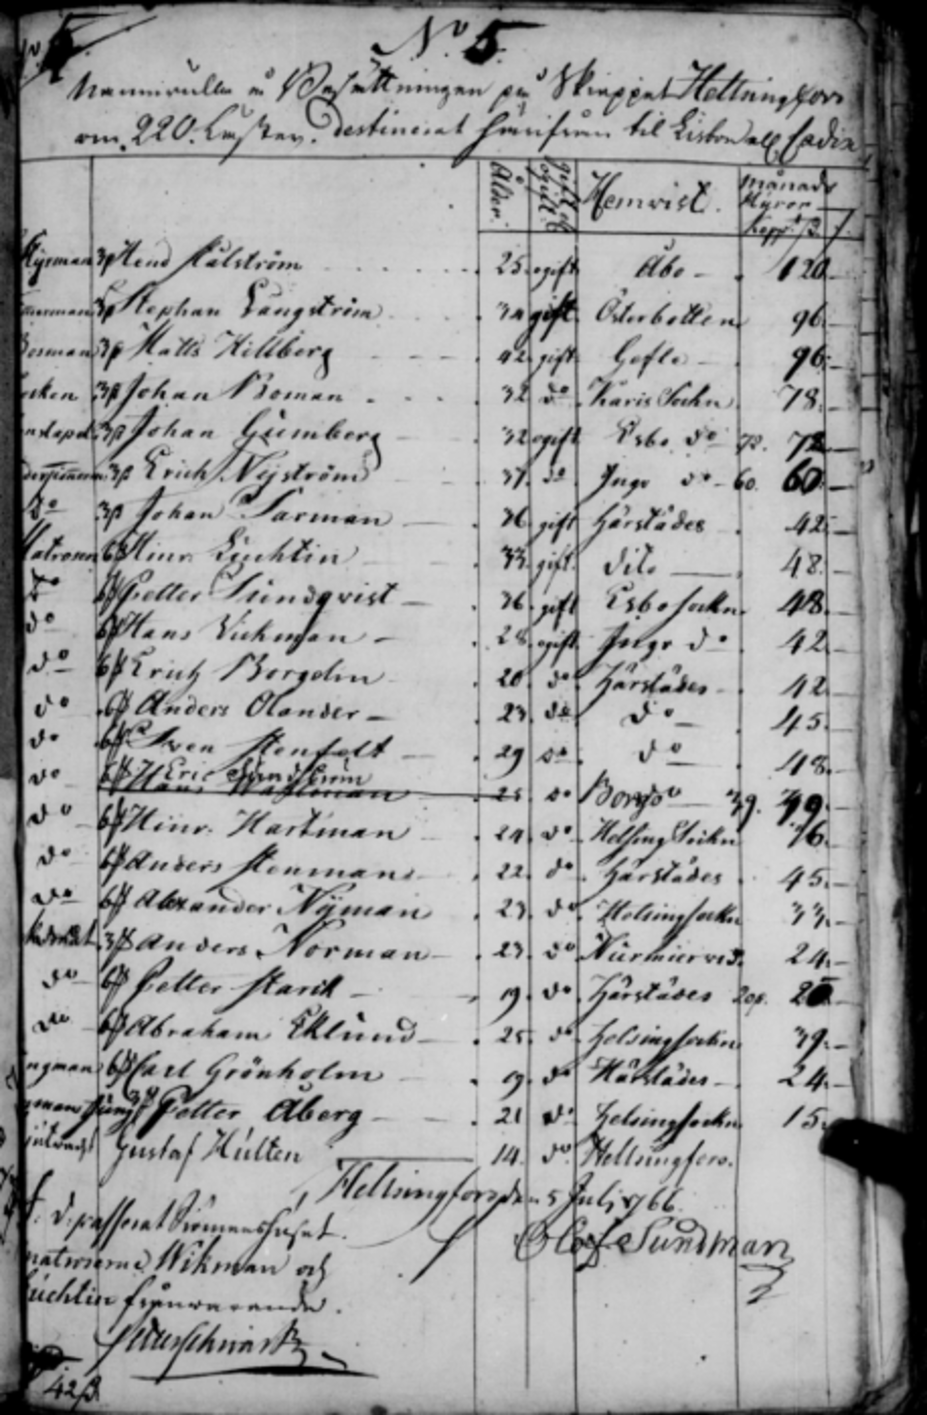 No 5.
Namnrulla å Besättningen på Skieppet Helsingfors
om 220. Läster. Destinerat härifrån til Lisbon ell Cadix
Ålder. gift el ogift Hemvist. månads Hyror
Kopp
Styrman 3β Hend Kålström 25 ogift Åbo 120
3β Stephan Långström 34 gift Österbotten 96
Bosman 3β Matts Hillberg 42 gift Gefle 96
3β Johan Boman 32 do Karis Sockn 78
3β Johan Grönberg 32 ogift Esbo do 72. 72
3β Erich Nyström 37 do Ingo do 60. 60
Do 3β Johan Forman 36 gift Härstädes 42
Matrosen 6β Hinr. Liichtin 33 gift dito 48
Do 6β Petter Sundqvist 36 gift Esbo sockn 48
do 6β Hans Vickman 28 ogift Ingo do 42
do 6β Erich Borgelin 20 do Härstädes 42
do 6β Anders Olander 23 do do 45
do 6β Sven Stenfelt 29 do do 48
do 6β Eric Sundström
Hans 25 do Borgo 39. 39
do 6β Hinr. Hartman 24 do Helsing Sockn 36
do 6β Anders Stenman 22 do Härstädes 45
do 6β Alexander Nyman 23 do Helsing sockn 33
3β Anders Norman 23 do Nurmiervi 24
do 6β Petter Starck 19 do Härstädes 20 20
do 6β Abraham Eklund 25 do Helsing sockn 39
ngman 6β Carl Grönholm 19 do Härstädes 24
Jung Petter Åberg 21 do Helsing sockn 15
Gustaf Hulten 14 do Hellsingfors.
Hellsingfors den 5 Julj 1766.
Olof Sundman
matroserne Wikman och
Liichtin frånwarande.
42β